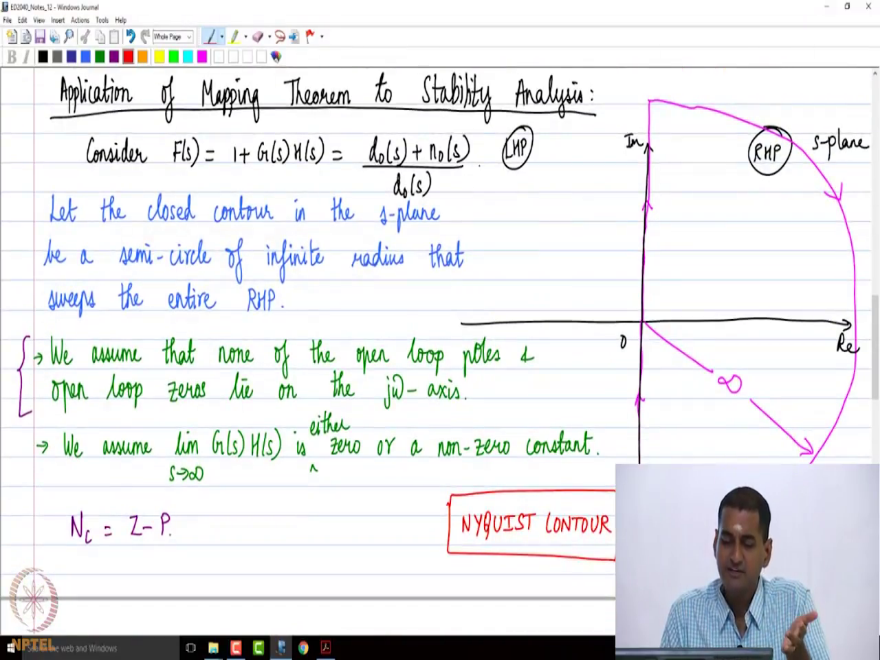 ED2040_Notes_12 - Windows Journal
File Edit View Insert Actions Tools Help
Whole Page
Application of Mapping Theorem to Stability Analysis:
Consider F(s) = 1 + G(s)H(s) = d₀(s) + n₀(s) / d₀(s). LHP
Let the closed contour in the s-plane
be a semi-circle of infinite radius that
sweeps the entire RHP.
→ We assume that none of the open loop poles &
open loop zeros lie on the jω-axis.
→ We assume lim s→∞ G(s)H(s) is either zero or a non-zero constant.
N_c = Z - P.
NYQUIST CONTOUR
Im
RHP
s-plane
0
Re
∞
NPTEL
the web and Windows